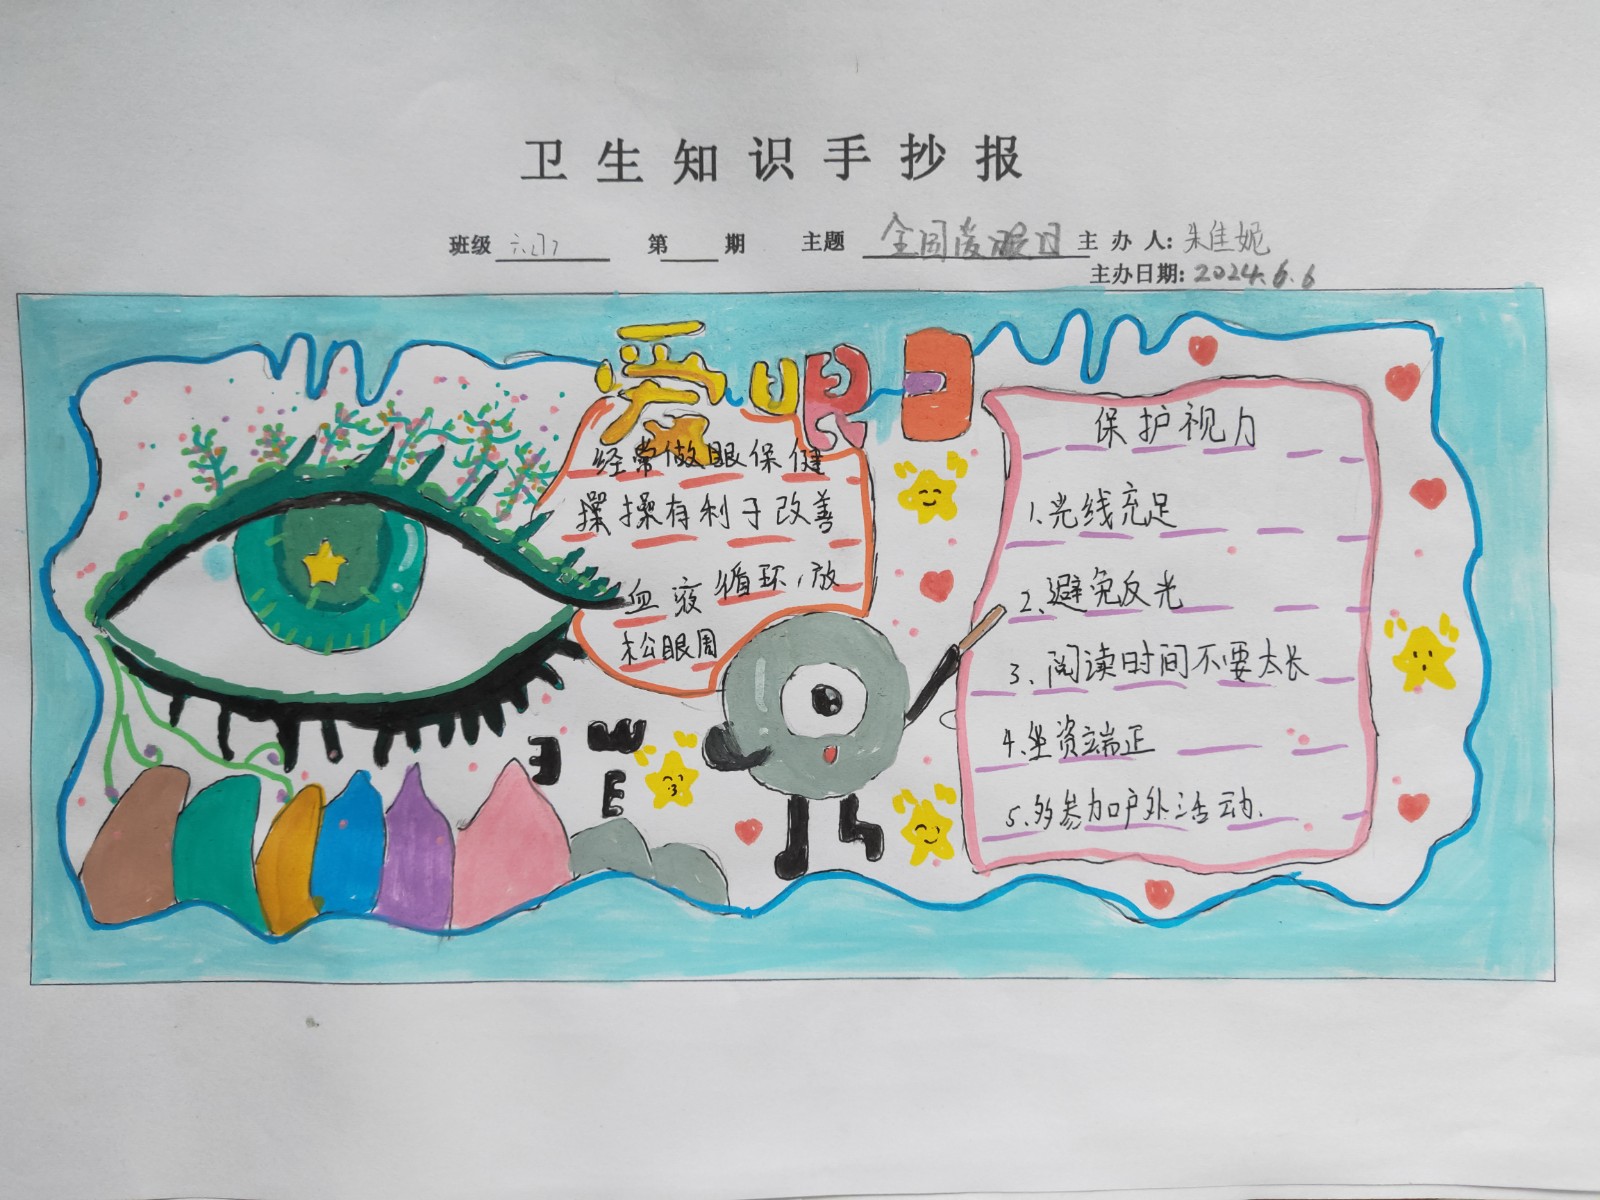 卫生知识手抄报
班级 六(1) 第 期 主题 全国爱眼日 主办人: 朱佳妮
主办日期: 2024.6.6
爱眼日
经常做眼保健
操操有利于改善
血液循环,放
松眼周
E E E
保护视力
1.光线充足
2.避免反光
3.阅读时间不要太长
4.坐资端正
5.多参加户外活动.